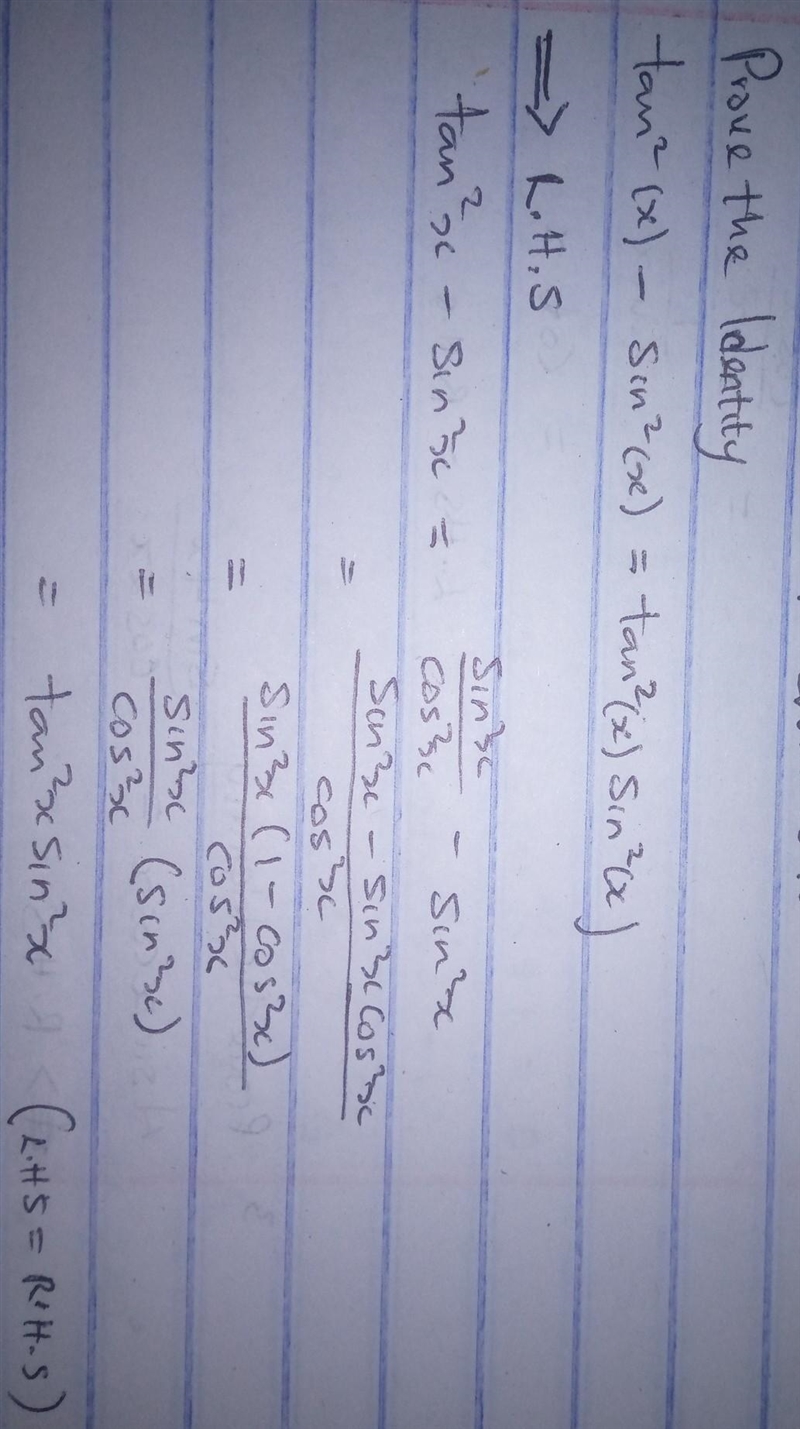 Prove the Identity
tan²(x) - Sin²(x) = tan²(x) Sin²(x)
⇒ L.H.S
tan²x - Sin²x = Sin²x/Cos²x - Sin²x
= Sin²x - Sin²x Cos²x / Cos²x
= Sin²x (1 - Cos²x) / Cos²x
= Sin²x/Cos²x (Sin²x)
= tan²x Sin²x (L.H S = R.H.S)